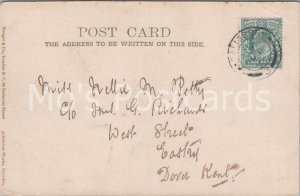 POST CARD
THE ADDRESS TO BE WRITTEN ON THIS SIDE.
Miss Nellie M. Petty
C/o Mrs G. Richards
West Street
Eastry
Dover Kent
Mo's Postcards